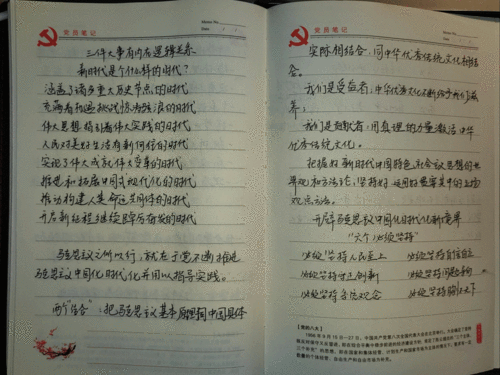 党员笔记
三件大事有内在逻辑关系
新时代是个什么样的时代?
涵盖了诸多重大历史节点的时代
充满着机遇挑战惊涛骇浪的时代
伟大思想指引着伟大实践的时代
人民对美好生活有新向往的时代
实现了伟大成就伟大变革的时代
推进和拓展中国式现代化的时代
推动构建人类命运共同体的时代
开启新征程继续
马克思主义之所以行,就在于党不断推进
马克思主义中国化时代化并用以指导实践。
两个"结合":把马克思主义基本原理同中国具体
党员笔记
实际相结合,同中华优秀传统文化相结
合。
我们是受益者,中华优秀文化不断给予我们滋
养;
我们是贡献者,用真理的力量激活中华
优秀传统文化。
把握好新时代中国特色社会主义思想的世
界观和方法论,坚持好、运用好贯穿其中的立场
观点方法。
开辟马克思主义中国化时代化新境界
"六个必须坚持"
必须坚持人民至上 必须坚持自信自立
必须坚持守正创新 必须坚持问题导向
必须坚持系统观念 必须坚持胸怀天下
【党的八大】